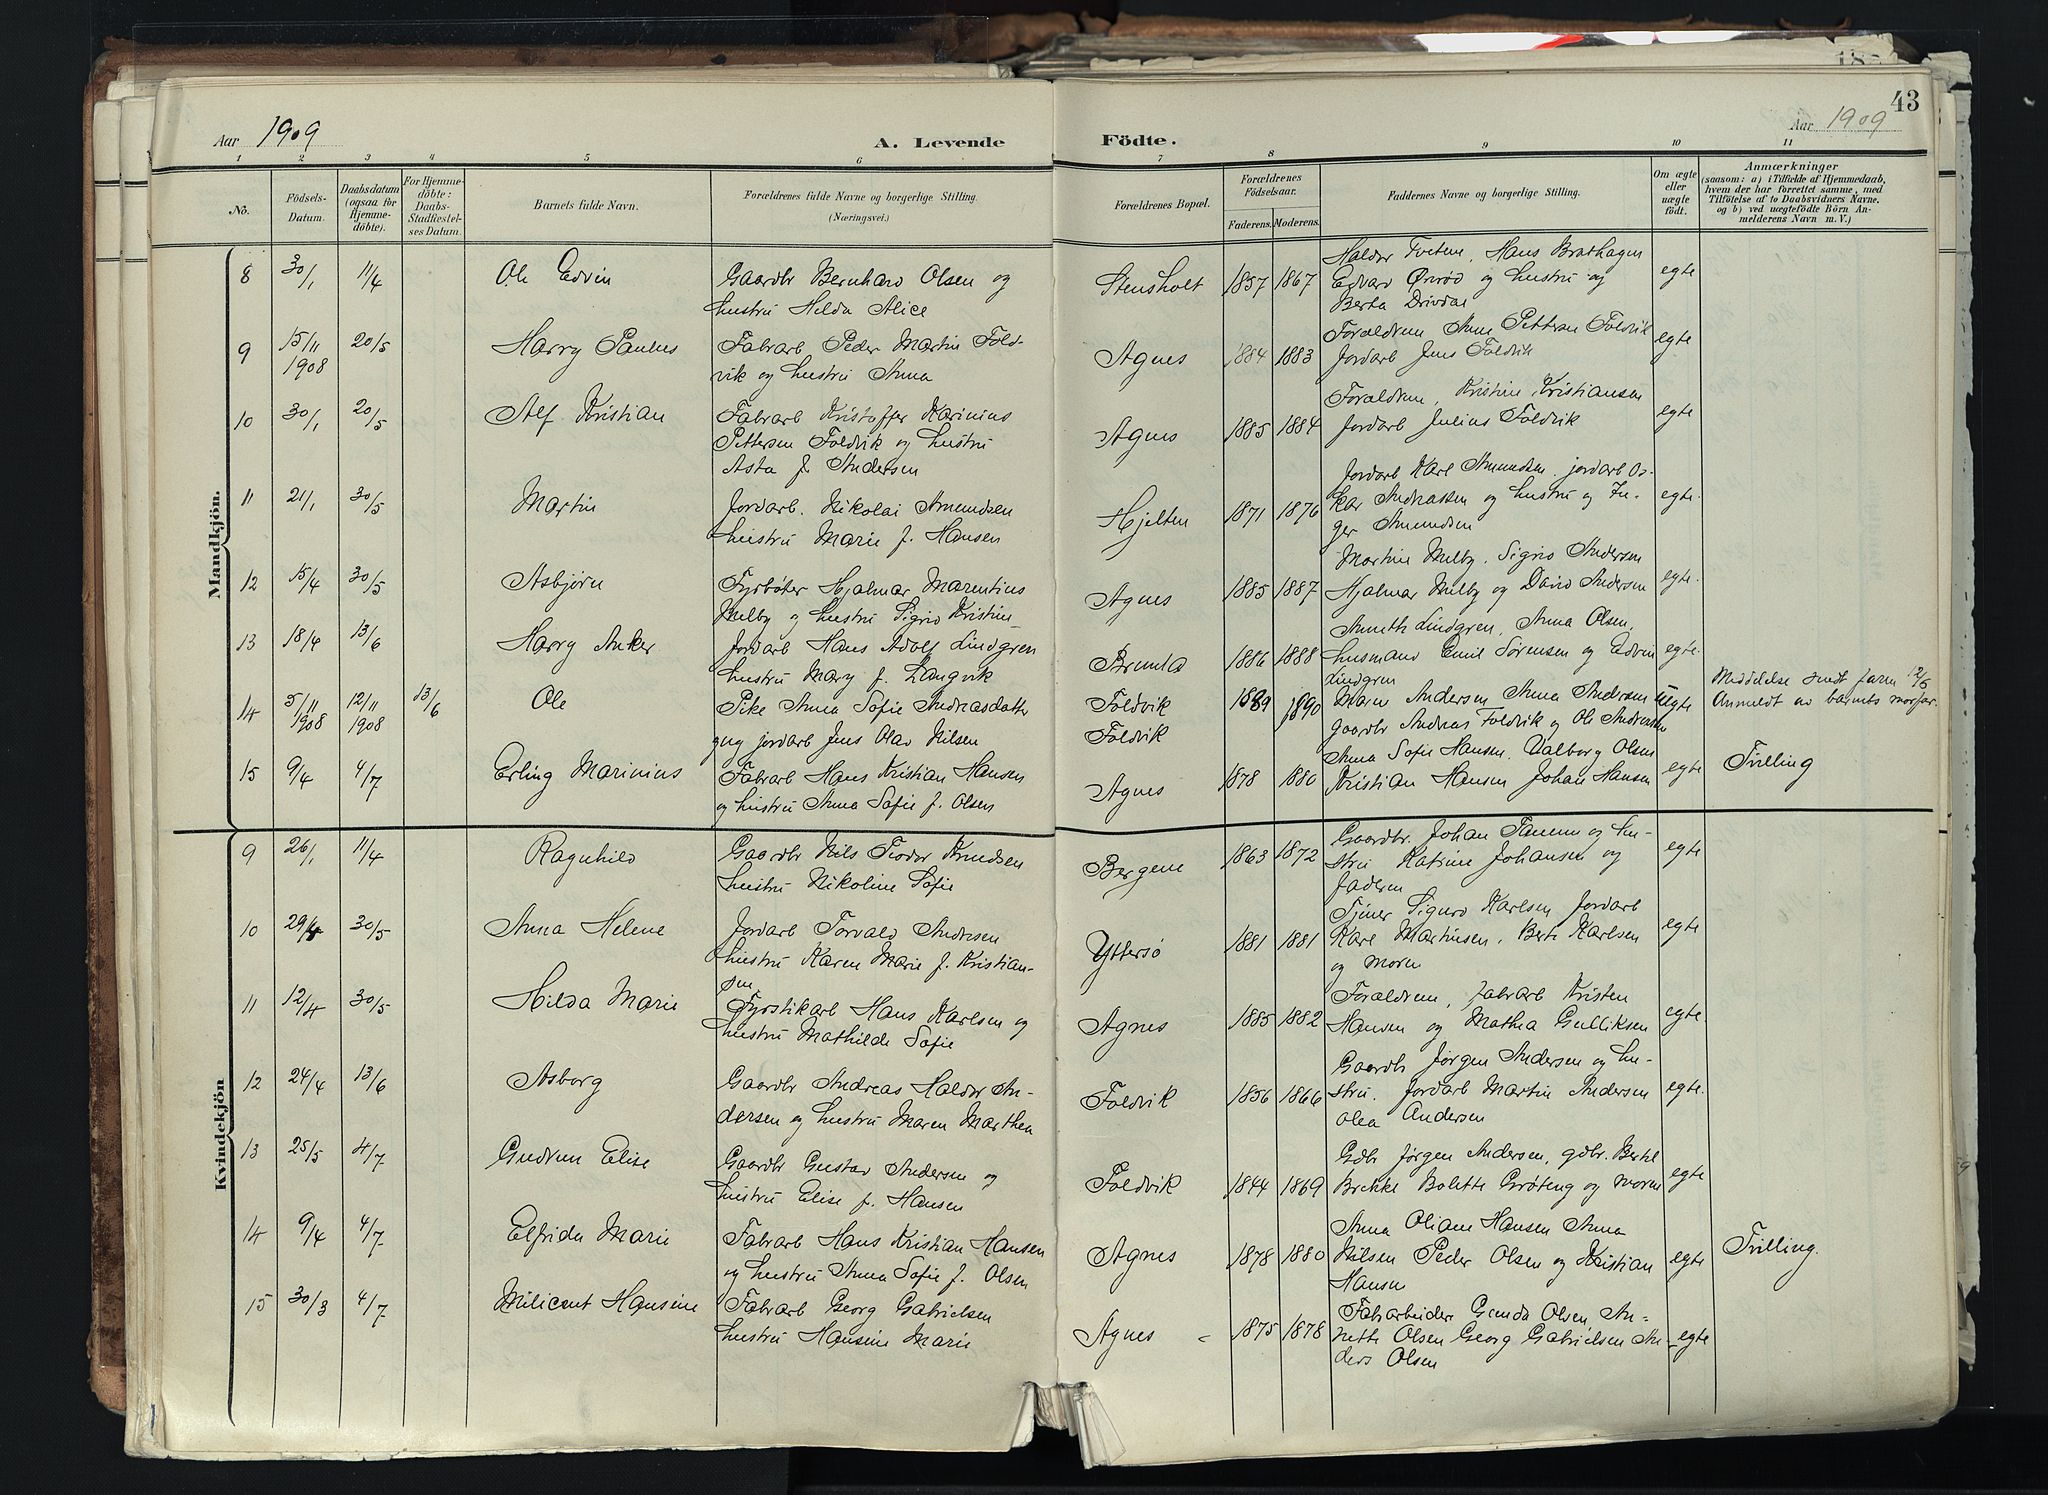 43
Aar 1909
A. Levende Födte.
Aar 1909
1 2 3 4 5 6 7 8 9 10 11
No.
Födsels-Datum.
Daabsdatum (ogsaa for Hjemme-döbte).
For Hjemme-döbte: Daabs-Stadfæstel-ses Datum.
Barnets fulde Navn.
Forældrenes fulde Navne og borgerlige Stilling. (Næringsvei.)
Forældrenes Bopæl.
Forældrenes Födselsaar.
Faderens. Moderens.
Faddernes Navne og borgerlige Stilling.
Om ægte eller uægte födt.
Anmærkninger
(saasom: a) i Tilfælde af Hjemmedaab,
hvem der har forrettet samme, med
Tilföielse af to Daabsvidners Navne,
og b) ved uægtefödte Börn An-
melderens Navn m. V.)
Mandkjön.
8 30/1 11/4 Ole Edvin
Gaardbr Bernhard Olsen og
hustru Hilda Alice
Stensholt 1857 1867
Haldor Tveten, Hans Brathagen
Edvard Ørerød og hustru og
Berta Drivdal
egte
9 15/11 1908 20/5 Harry Paulus
Fabrarb Peder Martin Fold-
vik og hustru Anna
Agnes 1884 1883
Forældrene Anna Pettersen Foldvik
Jordarb Jens Foldvik
egte
10 30/1 20/5 Alf Kristian
Fabrarb Kristoffer Karinius
Pettersen Foldvik og hustru
Asta f. Andersen
Agnes 1885 1884
Forældrene, Kristine Kristiansen
Jordarb Julius Foldvik
egte
11 21/1 30/5 Martin
Jordarb. Nikolai Amundsen
hustru Marie f. Hansen
Hjelten 1871 1876
Jordarb Karl Amundsen. jordarb Os-
kar Andreassen og hustru og In-
ger Amundsen
egte.
12 15/4 30/5 Asbjørn
Fyrbøter Hjalmar Marentius
Melby og hustru Sigrid Kristine
Agnes 1885 1887
Martine Melby. Sigrid Andersen
Hjalmar Melby og David Andersen
egte.
13 18/4 13/6 Harry Anker
Jordarb Hans Adolf Lindgren
hustru Mary f. Langvik
Brunla 1886 1888
Anneth Lindgren, Anna Olsen,
husmand Emil Sørensen og Edvin
Lindgren
egte.
14 5/11 1908 12/11 1908 13/6 Ole
Pike Anna Sofie Andreasdatter
og ug jordarb Jens Olav Nilsen
Foldvik
Foldvik
1889 1890
Maren Andersen Anna Andersen
gaardbr Andreas Foldvik og Ole Andersen
uegte
Meddelelse sendt farm 12/5
Anmeldt av barnets morfar.
15 9/4 4/7 Erling Marinius
Fabrarb Hans Kristian Hansen
og hustru Anna Sofie f. Olsen
Agnes 1878 1880
Anna Sofie Hansen. Valborg Olsen
Kristian Hansen Johan Hansen
egte
Tvilling
Kvindekjön
9 26/1 11/4 Ragnhild
Gaardbr Nils Teodor Knudsen
hustru Nikoline Sofie
Bergene 1863 1872
Gaardbr. Johan Tanum og hu-
stru Katrine Johansen og
faderen
egte
10 29/4 30/5 Anna Helene
Jordarb Torvald Andresen
hustru Karen Marie f. Kristian-
sen
Yttersø 1881 1881
Tjener Sigurd Karlsen Jordarb
Karl Martinsen. Berte Karlsen
og moren
egte
11 12/4 30/5 Hilda Marie
Fyrstikarb Hans Karlsen og
hustru Mathilde Sofie
Agnes 1885 1882
Forældrene, fabrarb Kristen
Hansen og Mathea Gulliksen
egte
12 24/4 13/6 Asborg
Gaardbr Andreas Haldor An-
dersen og hustru Maren Marthea
Foldvik 1856 1866
Gaardbr Jørgen Andersen og hu-
stru. Jordarb Martin Andersen
Olea Andersen
egte.
13 25/5 4/7 Gudrun Elise
Gaardbr Gustav Andersen og
hustru Elise f. Hansen
Foldvik 1844 1869
Gdbr Jørgen Andersen, gdbr. Bertel
Brekke Bolette Grøteng og moren
egte
14 9/4 4/7 Elfrida Marie
Fabrarb Hans Kristian Hansen
og hustru Anna Sofie f. Olsen
Agnes 1878 1880
Anna Oliane Hansen Anna
Nilsen Peder Olsen og Kristian
Hansen
egte
Tvilling.
15 30/3 4/7 Milicent Hansine
Fabrarb Georg Gabrielsen
hustru Hansine Marie
Agnes 1875 1878
Fabrarbeider Gunda Olsen An-
nette Olsen Georg Gabrielsen An-
ders Olsen
egte